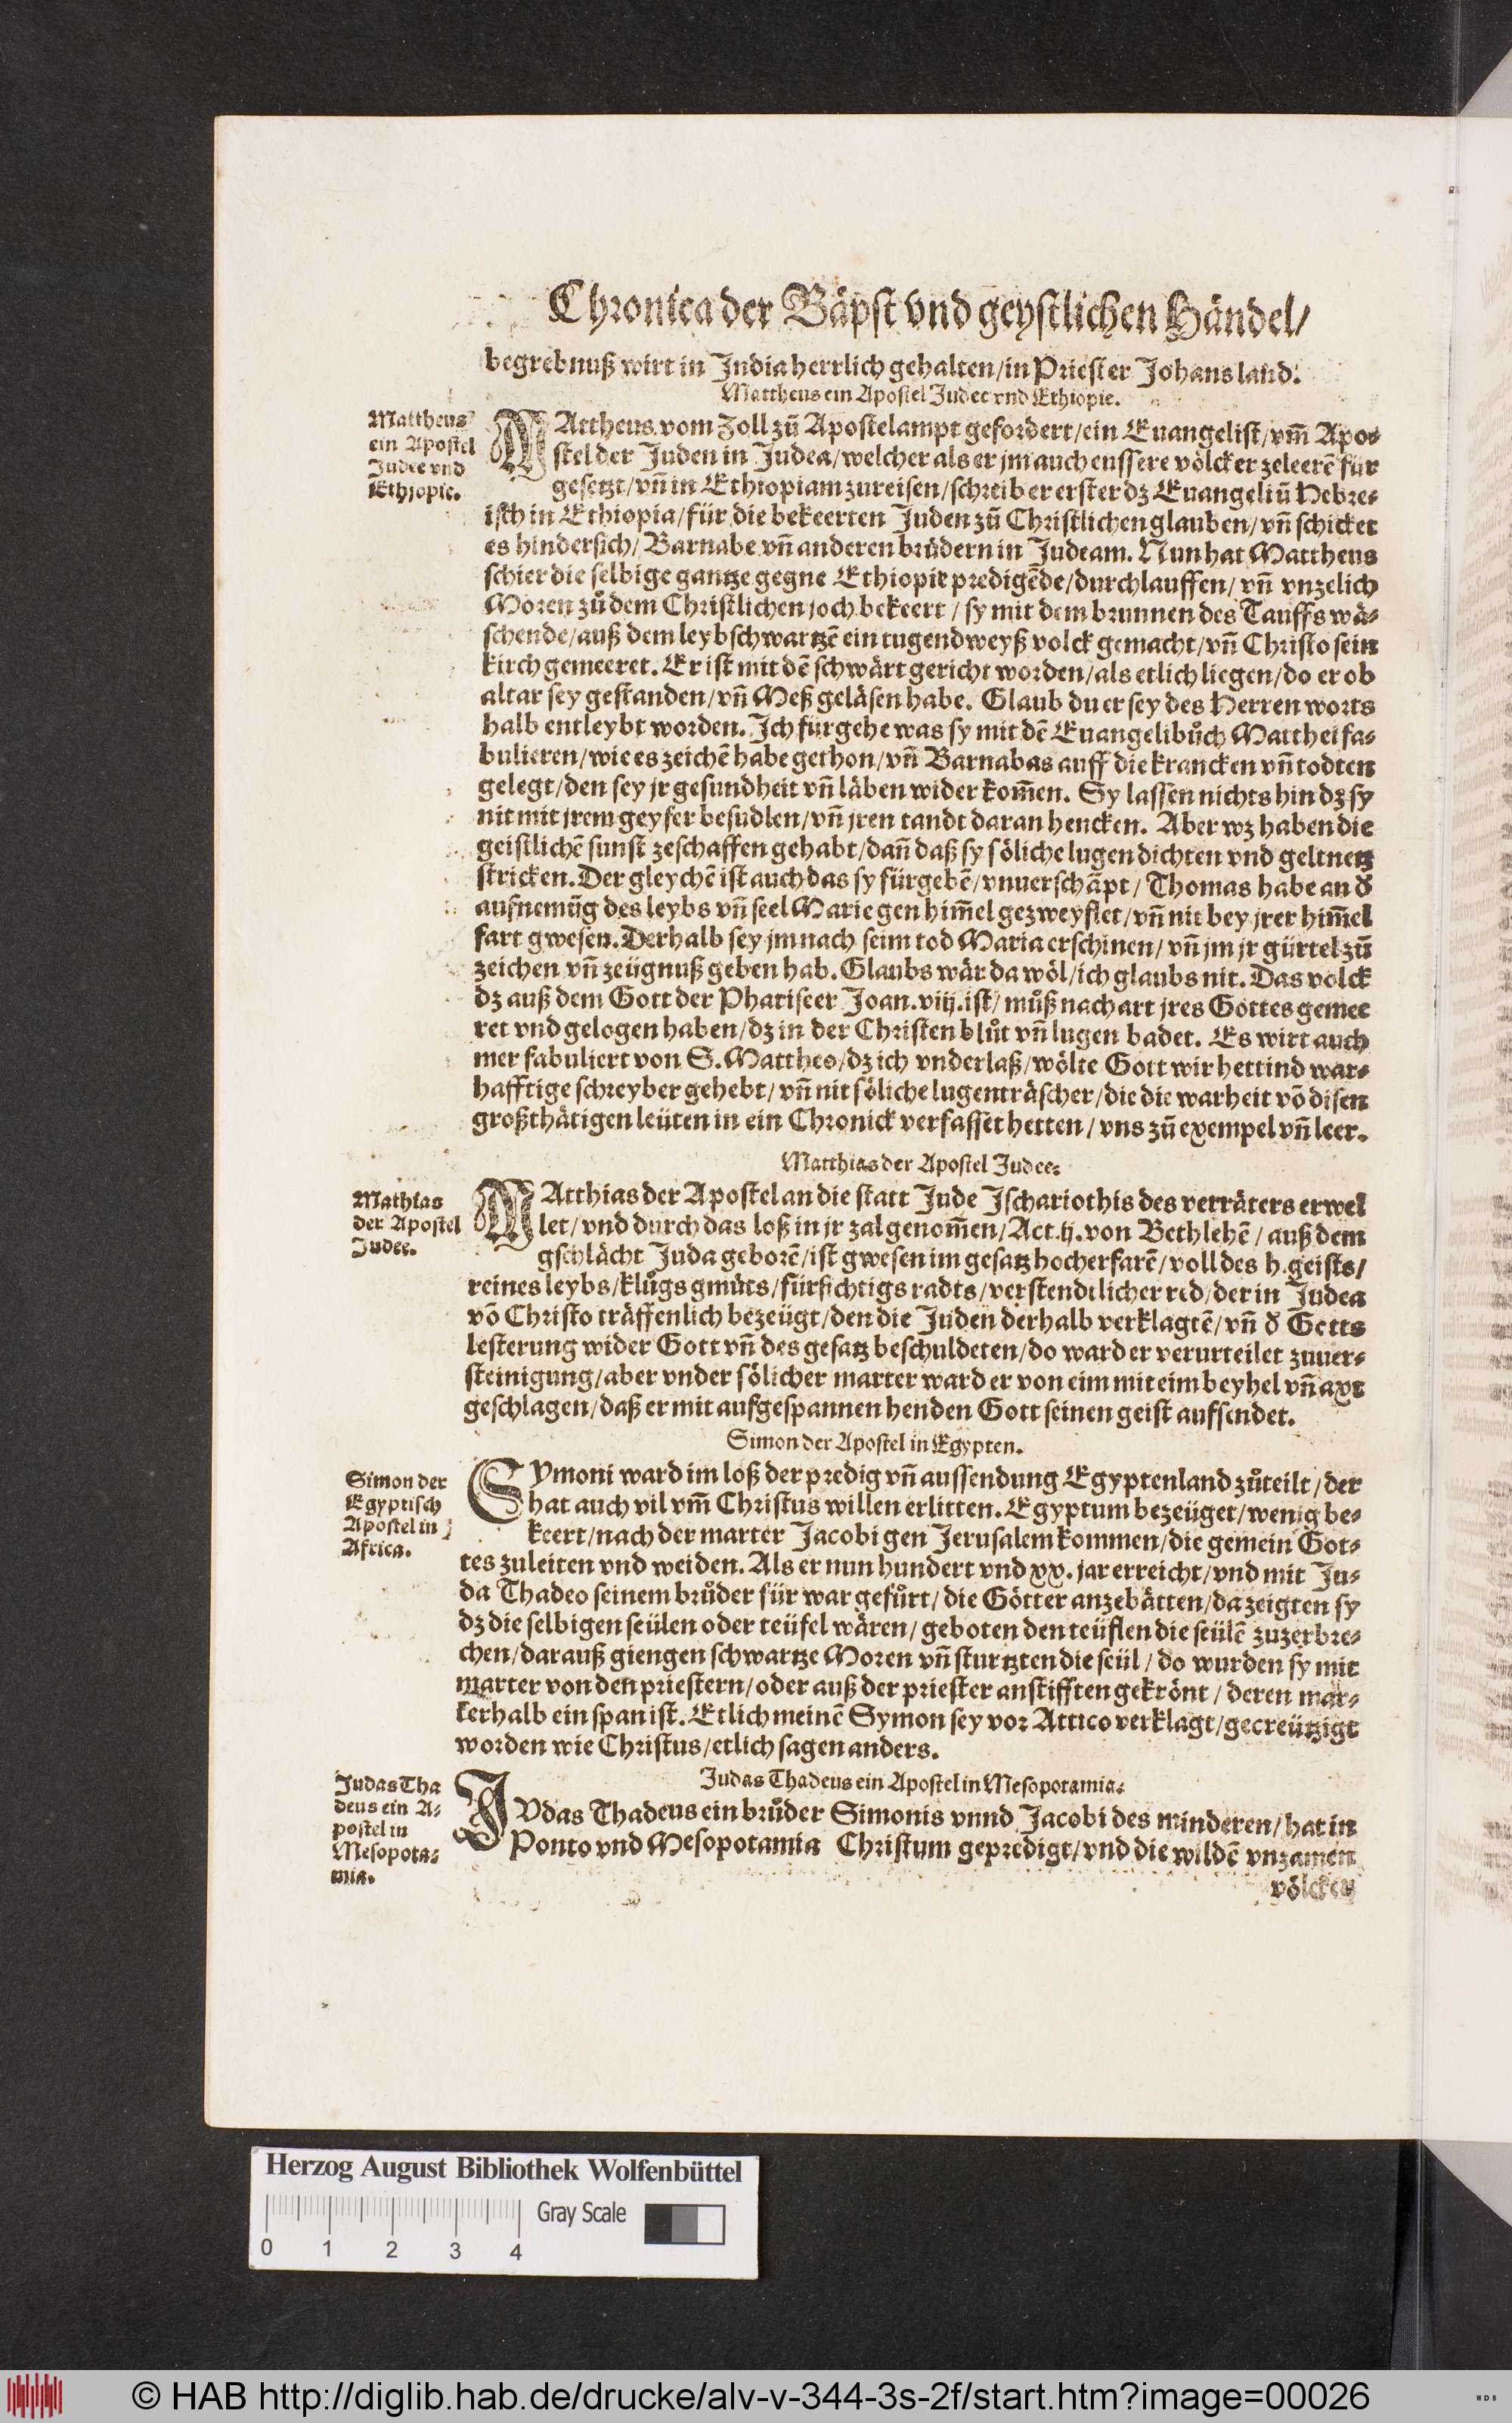 Chronica der Bäpst vnd geystlichen Händel/
begrebnuß wirt in India herrlich gehalten/in Priester Johans land.
Mattheus ein Apostel Judee vnd Ethiopie.
Mattheus
ein Apostel
Judee vnd
Ethiopie.
MAttheus vom Zoll zů Apostelampt gefordert/ein Euangelist/vm̃ Apos-
stel der Juden in Judea/welcher als er jm auch eussere völcker zeleerẽ für
gesetzt/vñ in Ethiopiam zureisen/schreib er erster dz Euangeliũ Hebre-
isch in Ethiopia/für die bekeerten Juden zů Christlichen glauben/vñ schicket
es hindersich/Barnabe vñ anderen brüdern in Judeam. Nun hat Mattheus
schier die selbige gantze gegne Ethiopie predigẽde/durchlauffen/vñ vnzelich
Moren zů dem Christlichen joch bekeert/sy mit dem brunnen des Tauffs wä-
schende/auß dem leyb schwartzẽ ein tugendweyß volck gemacht/vñ Christo sein
kirch gemeeret. Er ist mit dẽ schwärt gericht worden/als etlich liegen/do er ob
altar sey gestanden/vñ Meß geläsen habe. Glaub du er sey des Herren worts
halb entleybt worden. Ich fürgehe was sy mit dẽ Euangelibůch Matthei fa-
bulieren/wie es zeichẽ habe gethon/vñ Barnabas auff die krancken vñ todten
gelegt/den sey jr gesundheit vñ läben wider kom̃en. Sy lassen nichts hin dz sy
nit mit jrem geyfer besudlen/vñ jren tandt daran hencken. Aber wz haben die
geistlichẽ sunst zeschaffen gehabt/dañ daß sy söliche lugen dichten vnd geltnetz
stricken. Der gleychẽ ist auch das sy fürgebẽ/vnuerschãpt/Thomas habe an d̕
aufnemũg des leybs vñ seel Marie gen him̃el gezweyflet/vñ nit bey jrer him̃el
fart gwesen. Derhalb sey jm nach seim tod Maria erschinen/vñ jm jr gürtel zũ
zeichen vñ zeügnuß geben hab. Glaubs wär da wöl/ich glaubs nit. Das volck
dz auß dem Gott der Phariseer Joan.viij.ist/můß nach art jres Gottes gemee
ret vnd gelogen haben/dz in der Christen blůt vñ lugen badet. Es wirt auch
mer fabuliert von S. Mattheo/dz ich vnderlaß/wölte Gott wir hettind war-
hafftige schreyber gehebt/vñ nit söliche lugenträscher/die die warheit võ disen
großthätigen leüten in ein Chronick verfasset hetten/vns zũ exempel vñ leer.
Matthias der Apostel Judee.
Mathias
der Apostel
Judee.
MAtthias der Apostel an die statt Jude Ischariothis des verräters erwel
let/vnd durch das loß in jr zal genom̃en/Act.ij.von Bethlehẽ/auß dem
gschlächt Juda geborẽ/ist gwesen im gesatz hocherfarẽ/voll des h.geists/
reines leybs/klůgs gmůts/fürsichtigs radts/verstendtlicher red/der in Judea
võ Christo träffenlich bezeügt/den die Juden derhalb verklagtẽ/vñ d̕ Gotts
lesterung wider Gott vñ des gesatz beschuldeten/do ward er verurteilet zuuer-
steinigung/aber vnder sölicher marter ward er von eim mit eim beyhel vñ axt
geschlagen/daß er mit aufgespannen henden Gott seinen geist aufsendet.
Simon der Apostel in Egypten.
Simon der
Egyptisch
Apostel in
Africa.
SYmoni ward im loß der predig vñ aussendung Egyptenland zůteilt/der
hat auch vil vm̃ Christus willen erlitten. Egyptum bezeüget/wenig be-
keert/nach der marter Jacobi gen Jerusalem kommen/die gemein Got-
tes zuleiten vnd weiden. Als er nun hundert vnd xx. jar erreicht/vnd mit Ju-
da Thadeo seinem brůder für war gefůrt/die Götter anzebätten/da zeigten sy
dz die selbigen seülen oder teüfel wären/geboten den teüflen die seülẽ zuzerbre-
chen/darauß giengen schwartze Moren vñ sturtzten die seül/do wurden sy mit
marter von den priestern/oder auß der priester anstifften gekrönt/deren mar-
kerhalb ein span ist. Etlich meinẽ Symon sey vor Attico verklagt/gecreützigt
worden wie Christus/etlich sagen anders.
Judas Thadeus ein Apostel in Mesopotamia.
Judas Tha
deus ein A-
postel in
Mesopota-
mia.
JVdas Thadeus ein brůder Simonis vnnd Jacobi des minderen/hat in
Ponto vnd Mesopotamia Christum gepredigt/vnd die wildẽ vnzamen
völcker
Herzog August Bibliothek Wolfenbüttel
Gray Scale
0 1 2 3 4
© HAB http://diglib.hab.de/drucke/alv-v-344-3s-2f/start.htm?image=00026
WDB